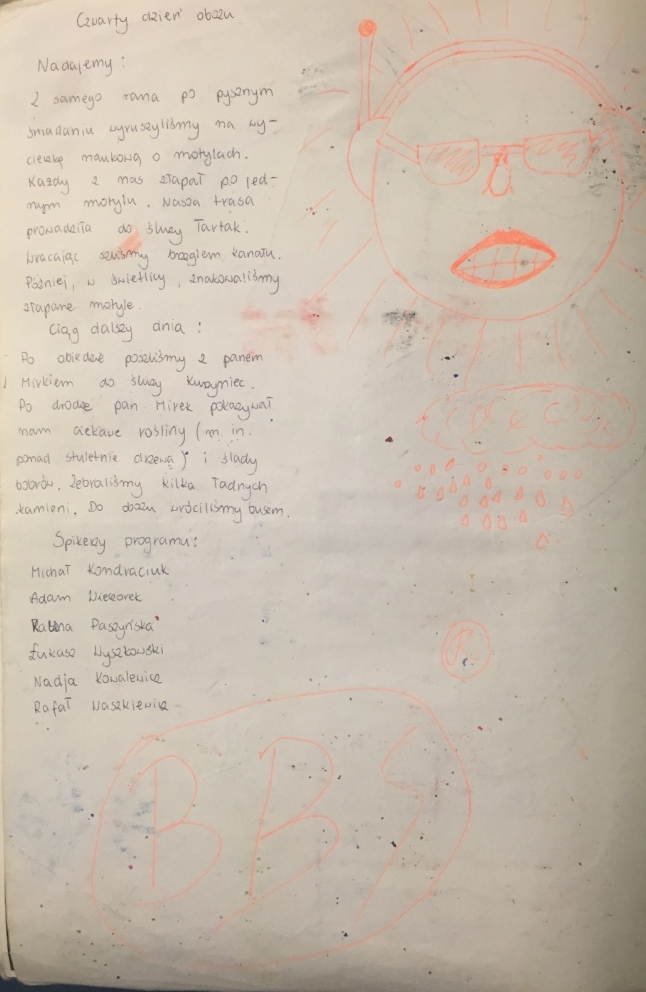 Czwarty dzień obozu
Nadajemy:
Z samego rana po pysznym
śniadaniu wyruszyliśmy na wy-
cieczkę naukową o motylach.
Każdy z nas złapał po jed-
nym motylu. Nasza trasa
prowadziła do śluzy Tartak.
Wracając szliśmy brzegiem kanału.
Później, w świetlicy, znakowaliśmy
złapane motyle.
Ciąg dalszy dnia:
Po obiedzie poszliśmy z panem
Mirkiem do śluzy Kurzyniec.
Po drodze pan Mirek pokazywał
nam ciekawe rośliny (m. in.
ponad stuletnie drzewa) i ślady
bobrów. Zebraliśmy kilka ładnych
kamieni. Do obozu wróciliśmy busem.
Spikerzy programu:
Michał Kondraciuk
Adam Wieczorek
Paszyńska
Łukasz Wyszkowski
Nadja Kowalewicz
Rafał Waszkiewicz
R
BBS